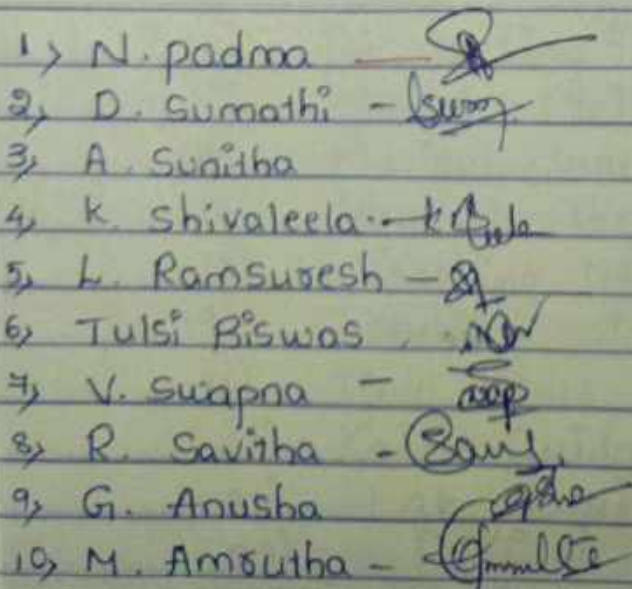 1) N. padma —
2) D. Sumathi -
3) A. Sunitha
4) K. Shivaleela. -
5) L. Ramsuresh -
6) Tulsi Biswas
7) V. Swapna -
8) R. Savitha -
9) G. Anusha
10) M. Amrutha -